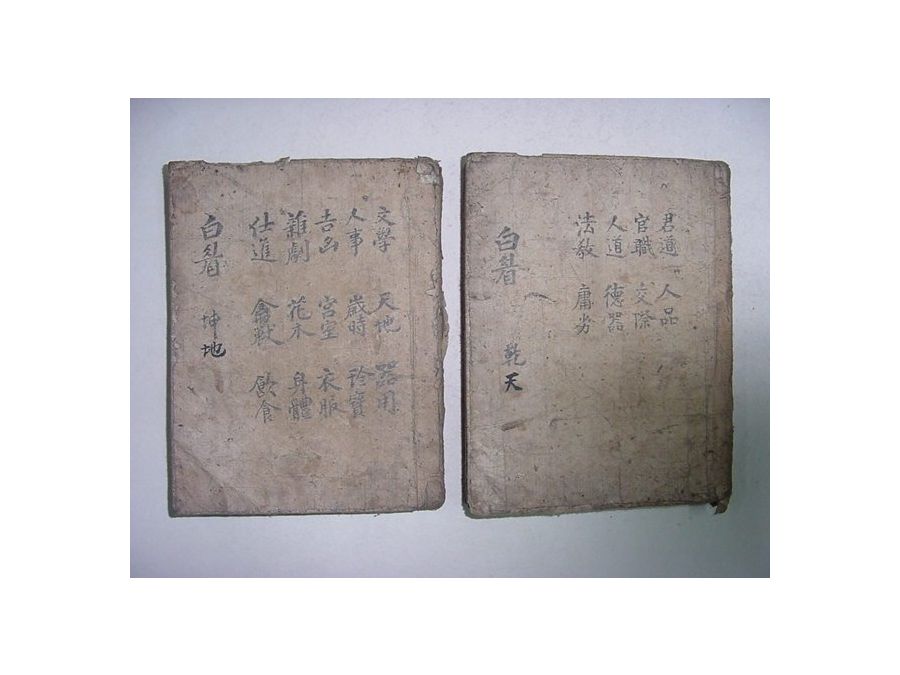 君道 人品
官職 交際
人道 德器
法敎 庸劣
白眉 乾天
文學 天地 器用
人事 歲時 珍寶
吉凶 宮室 衣服
雜劇 花木 身體
仕進 禽獸 飮食
白眉 坤地